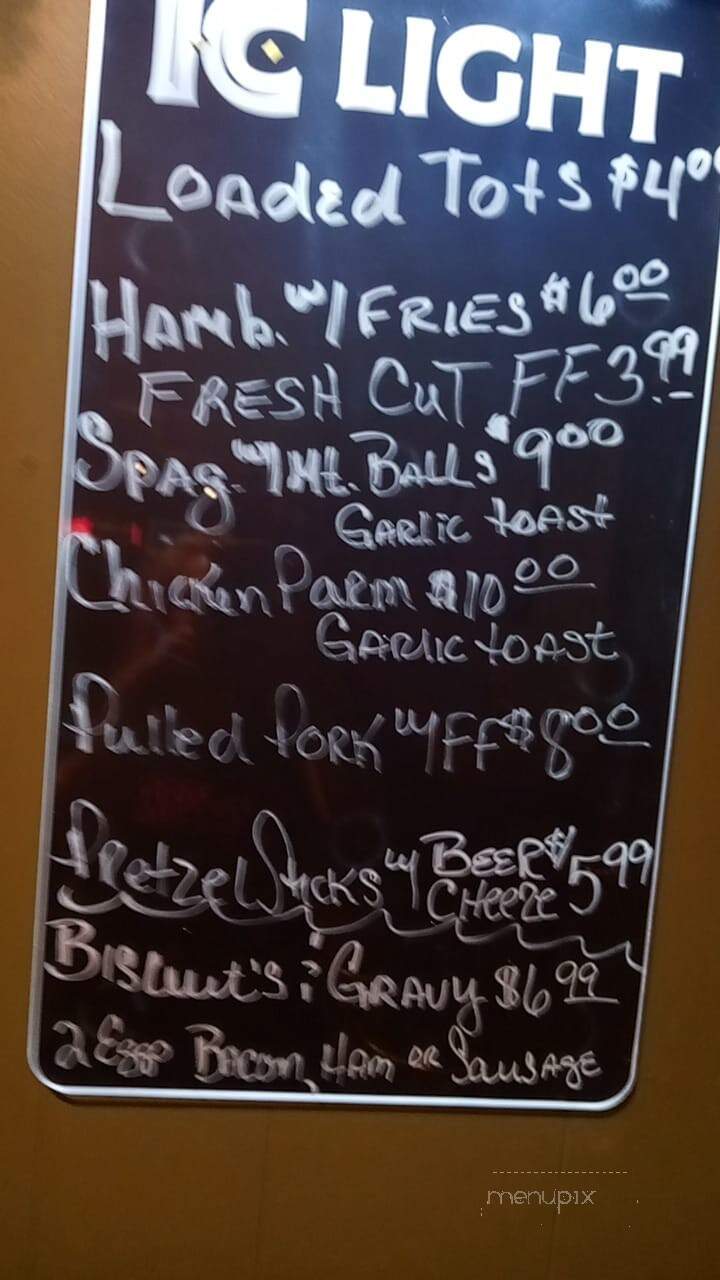 IC LIGHT
Loaded Tots $4.00
Hamb. w/ FRIES $6.00
FRESH CUT FF 3.99
Spag. w/ Mt. Balls $9.00
Garlic toast
Chicken Parm $10.00
Garlic toast
Pulled Pork w/ FF $8.00
Pretzel Sticks w/ Beer Cheeze $5.99
Biscuut's & Gravy $6.99
2 Eggs Bacon, Ham or Sausage
menupix